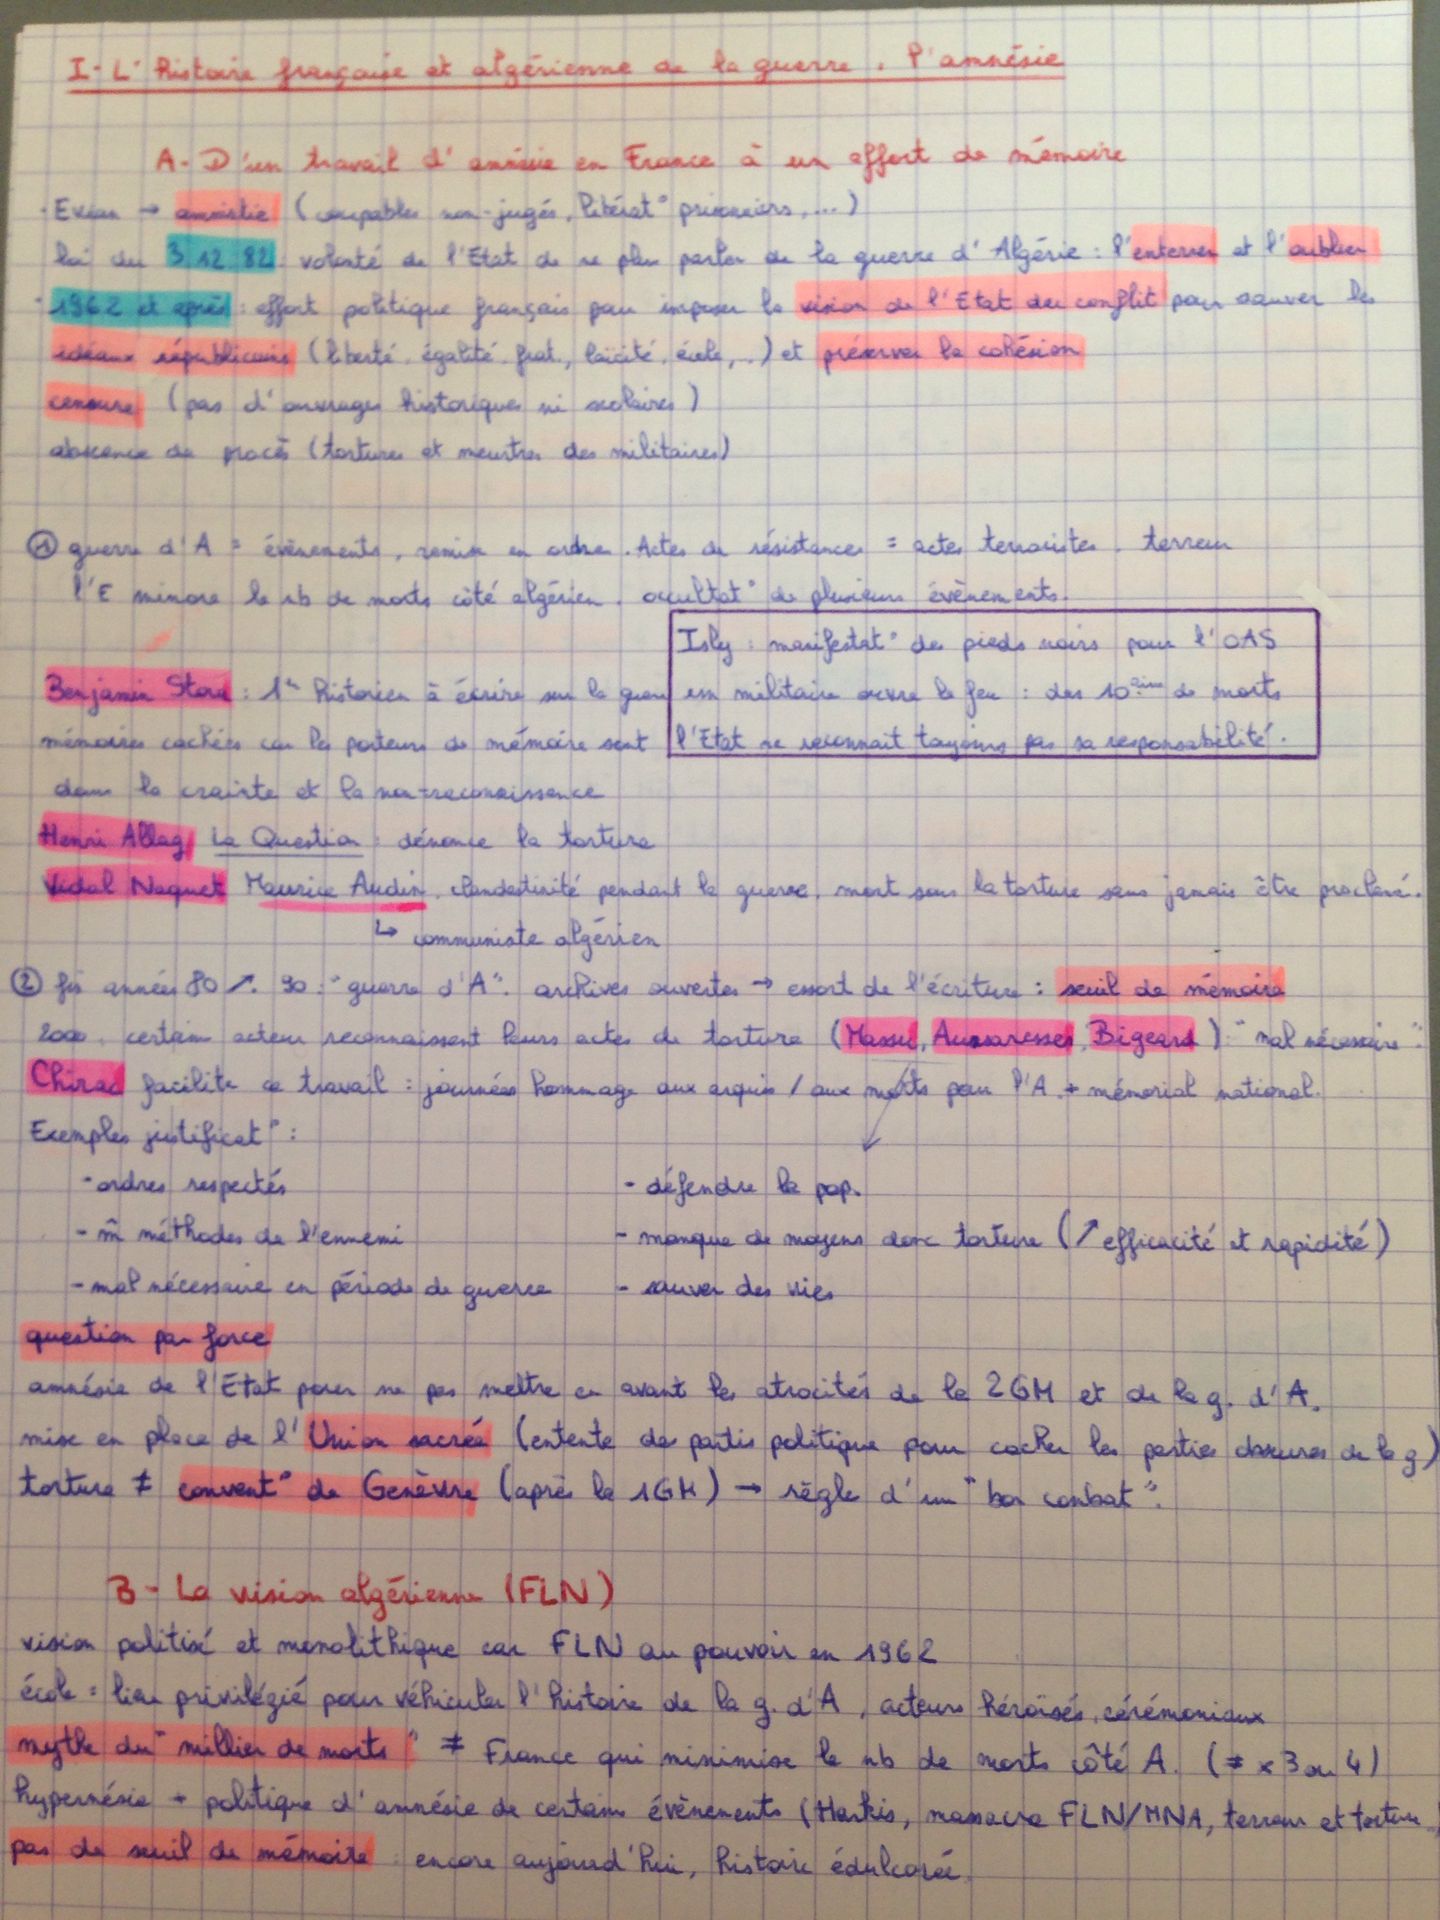 I- L'histoire française et algérienne de la guerre. l'amnésie
A- D'un travail d'amnésie en France à un effort de mémoire
- Evian → amnistie (coupables non-jugés, libérat° prisonniers, ...)
loi du 3 12 82 : volonté de l'Etat de ne plus parler de la guerre d'Algérie : l'enterrer et l'oublier
- 1962 et après : effort politique français pour imposer la vision de l'Etat du conflit pour sauver les
idéaux républicains (liberté, égalité, frat., laïcité, école, ..) et préserver la cohésion
censure (pas d'ouvrages historiques ni scolaires)
absence de procès (tortures et meurtres des militaires)
① guerre d'A = évènements, remise en ordre. Actes de résistances = actes terroristes. terreur
l'E minore le nb de morts côté algérien. occultat° de plusieurs évènements.
Isly : manifestat° des pieds noirs pour l'OAS
un militaire ouvre le feu : des 10aine de morts
l'Etat ne reconnait toujours pas sa responsabilité.
Benjamin Stora : 1er historien à écrire sur la guerre
mémoires cachées car les porteurs de mémoire sont
dans la crainte et la non-reconnaissance
Henri Allag La Question : dénonce la torture
Vidal Naquet Maurice Audin, clandestinité pendant la guerre, mort sous la torture sans jamais être proclamé.
↳ communiste algérien
② fin années 80 ↗ 90 : "guerre d'A". archives ouvertes → essort de l'écriture : seuil de mémoire
2000. certains acteurs reconnaissent leurs actes de torture (Massu, Aussaresses, Bigeard) "mal nécessaire"
Chirac facilite ce travail : journées hommage aux arquis / aux morts pour l'A + mémorial national.
Exemples justificat° :
- ordres respectés
- m̂ méthodes de l'ennemi
- mal nécessaire en période de guerre
- défendre la pop.
- manque de moyens donc torture (↗ efficacité et rapidité)
- sauver des vies
question par force
amnésie de l'Etat pour ne pas mettre en avant les atrocités de la 2GM et de la g. d'A.
mise en place de l'Union sacrée (entente de partis politique pour cacher les parties obscures de la g)
torture ≠ convent° de Genèvre (après la 1GM) → règle d'un "bon combat".
B- La vision algérienne (FLN)
vision politisé et monolithique car FLN au pouvoir en 1962
école = lieu privilégié pour véhiculer l'histoire de la g. d'A, acteurs héroïsés, cérémoniaux
mythe du "millier de morts" ≠ France qui minimise le nb de morts côté A. (≠ x 3 ou 4)
hypernésie + politique d'amnésie de certains évènements (Harkis, massacre FLN/MNA, terreur et torture..)
pas de seuil de mémoire : encore aujourd'hui, histoire édulcorée.